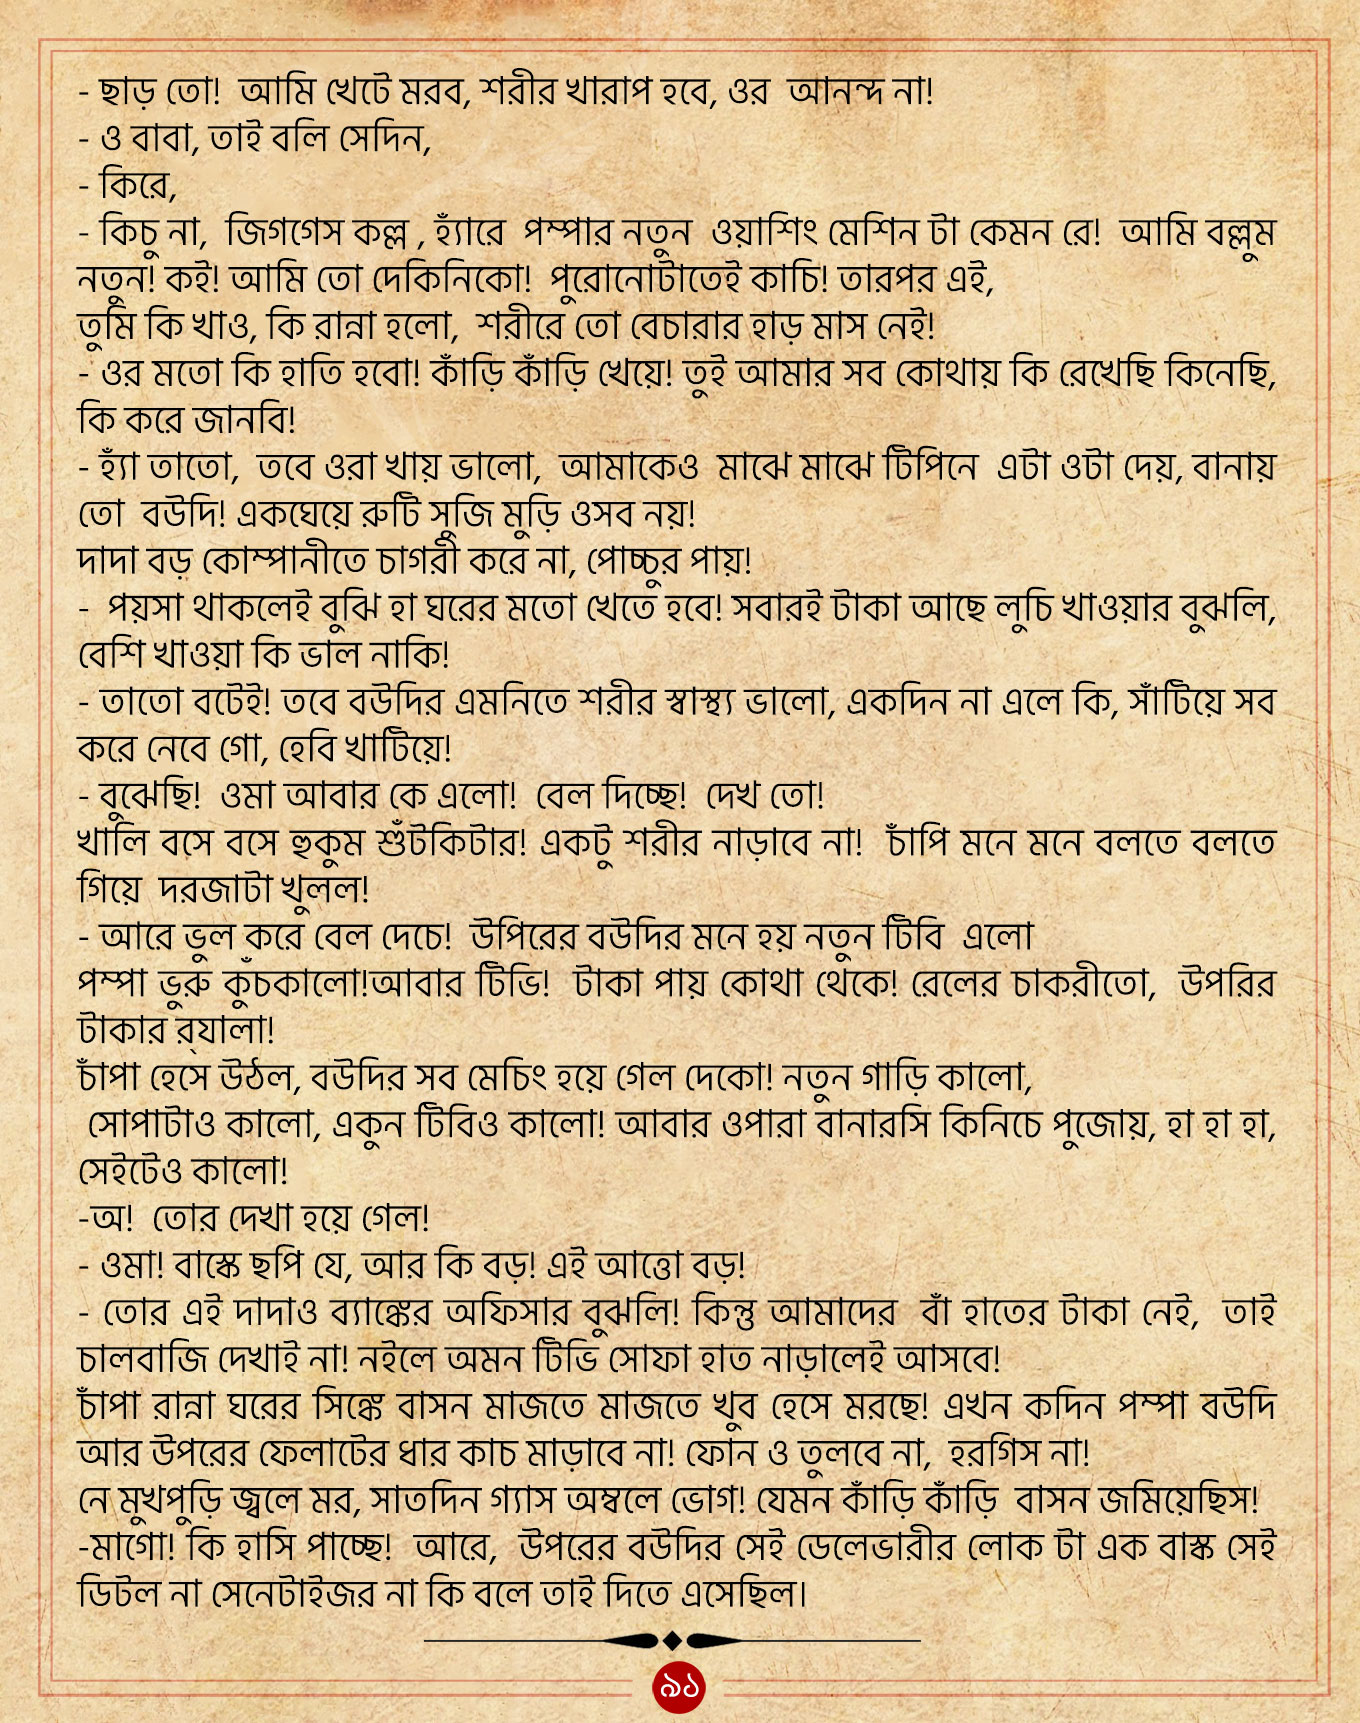 - ছাড় তো!  আমি খেটে মরব, শরীর খারাপ হবে, ওর  আনন্দ না!
- ও বাবা, তাই বলি সেদিন,
- কিরে,
- কিচু না,  জিগগেস কল্ল , হ্যাঁরে  পম্পার নতুন  ওয়াশিং মেশিন টা কেমন রে!  আমি বল্লুম
নতুন! কই! আমি তো দেকিনিকো!  পুরোনোটাতেই কাচি! তারপর এই,
তুমি কি খাও, কি রান্না হলো,  শরীরে তো বেচারার হাড় মাস নেই!
- ওর মতো কি হাতি হবো! কাঁড়ি কাঁড়ি খেয়ে! তুই আমার সব কোথায় কি রেখেছি কিনেছি,
কি করে জানবি!
- হ্যাঁ তাতো,  তবে ওরা খায় ভালো,  আমাকেও  মাঝে মাঝে টিপিনে  এটা ওটা দেয়, বানায়
তো  বউদি! একঘেয়ে রুটি সুজি মুড়ি ওসব নয়!
দাদা বড় কোম্পানীতে চাগরী করে না, পোচ্চুর পায়!
-  পয়সা থাকলেই বুঝি হা ঘরের মতো খেতে হবে! সবারই টাকা আছে লুচি খাওয়ার বুঝলি,
বেশি খাওয়া কি ভাল নাকি!
- তাতো বটেই! তবে বউদির এমনিতে শরীর স্বাস্থ্য ভালো, একদিন না এলে কি, সাঁটিয়ে সব
করে নেবে গো, হেবি খাটিয়ে!
- বুঝেছি!  ওমা আবার কে এলো!  বেল দিচ্ছে!  দেখ তো!
খালি বসে বসে হুকুম শুঁটকিটার! একটু শরীর নাড়াবে না!  চাঁপি মনে মনে বলতে বলতে
গিয়ে  দরজাটা খুলল!
- আরে ভুল করে বেল দেচে!  উপিরের বউদির মনে হয় নতুন টিবি  এলো
পম্পা ভুরু কুঁচকালো!আবার টিভি!  টাকা পায় কোথা থেকে! রেলের চাকরীতো,  উপরির
টাকার র‍্যালা!
চাঁপা হেসে উঠল, বউদির সব মেচিং হয়ে গেল দেকো! নতুন গাড়ি কালো,
সোপাটাও কালো, একুন টিবিও কালো! আবার ওপারা বানারসি কিনিচে পুজোয়, হা হা হা,
সেইটেও কালো!
-অ!  তোর দেখা হয়ে গেল!
- ওমা! বাস্কে ছপি যে, আর কি বড়! এই আত্তো বড়!
- তোর এই দাদাও ব্যাঙ্কের অফিসার বুঝলি! কিন্তু আমাদের  বাঁ হাতের টাকা নেই,  তাই
চালবাজি দেখাই না! নইলে অমন টিভি সোফা হাত নাড়ালেই আসবে!
চাঁপা রান্না ঘরের সিঙ্কে বাসন মাজতে মাজতে খুব হেসে মরছে! এখন কদিন পম্পা বউদি
আর উপরের ফেলাটের ধার কাচ মাড়াবে না! ফোন ও তুলবে না,  হরগিস না!
নে মুখপুড়ি জ্বলে মর, সাতদিন গ্যাস অম্বলে ভোগ! যেমন কাঁড়ি কাঁড়ি  বাসন জমিয়েছিস!
-মাগো! কি হাসি পাচ্ছে!  আরে,  উপরের বউদির সেই ডেলেভারীর লোক টা এক বাস্ক সেই
ডিটল না সেনেটাইজর না কি বলে তাই দিতে এসেছিল।
৯১